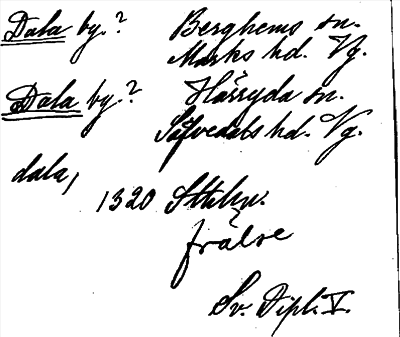 Dala by.? Berghems sn.
Marks hd. Vg.
Dala by.? Härryda sn.
Säfvedals hd. Vg.
dala,
1320 Sthlm.
frälse
Sv. Dipl. V.